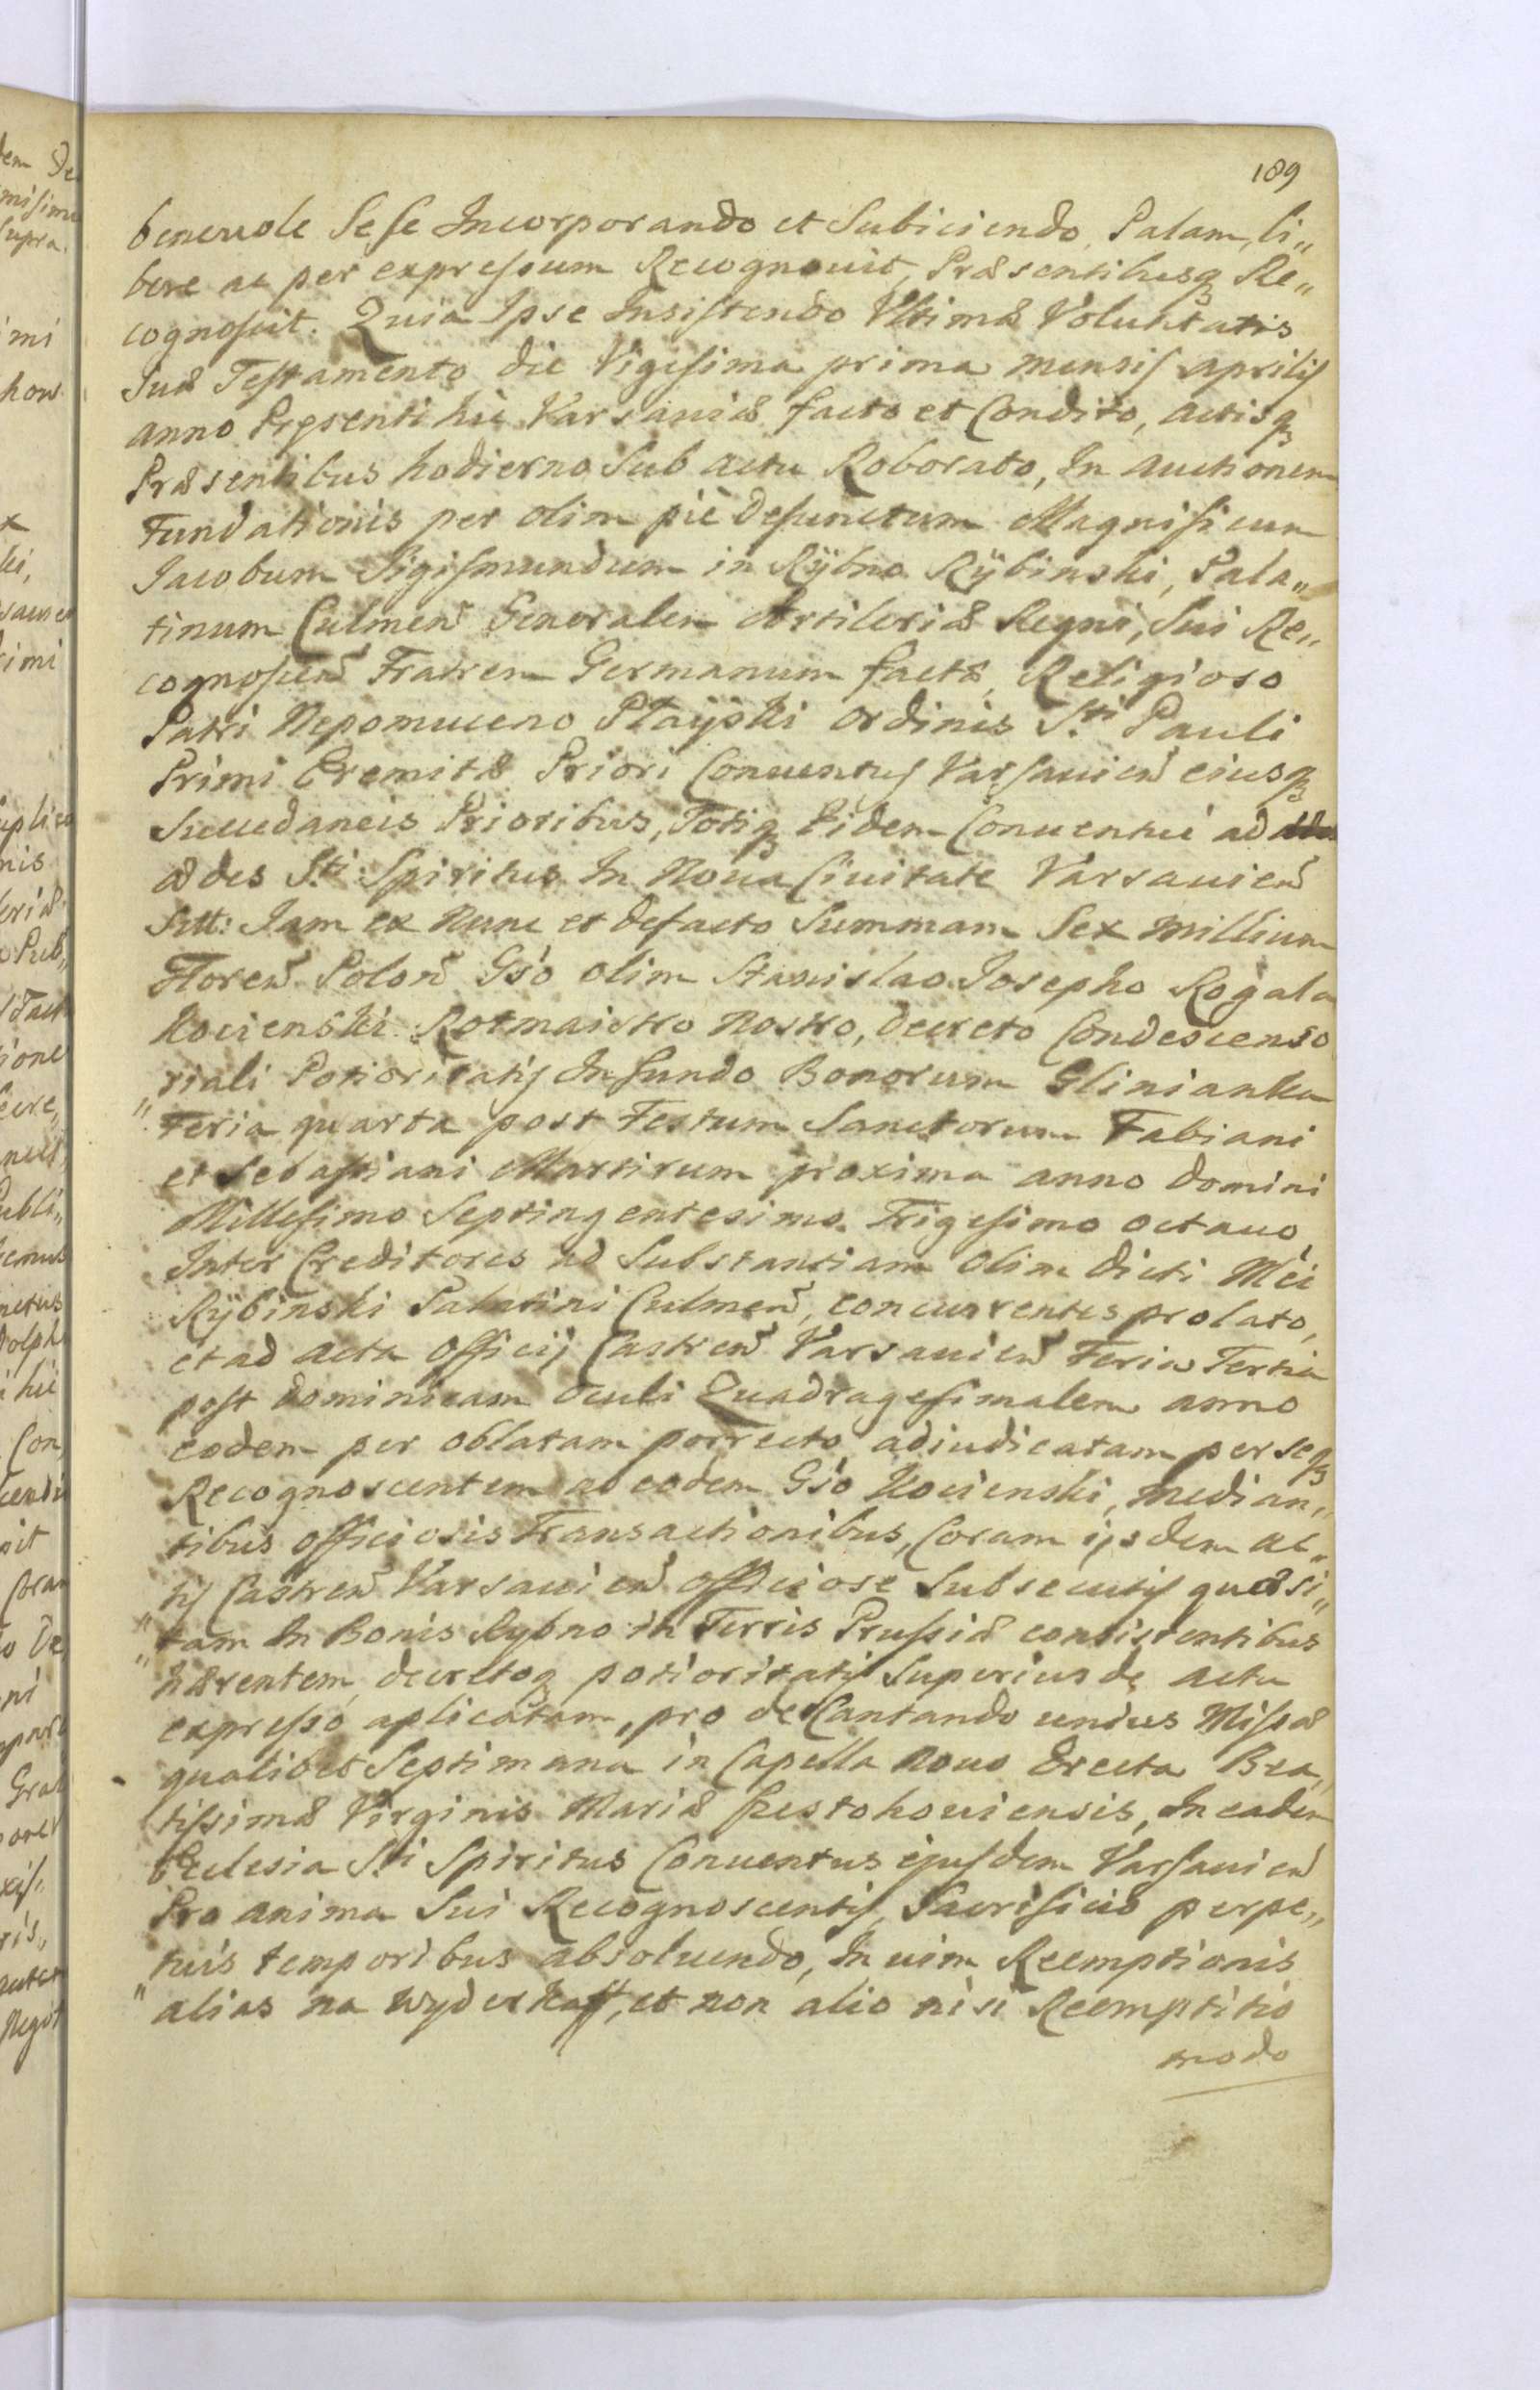 189
beneuole Sese Incorporando et Subiciendo, Palam, li„
bere ac per expressum Recognouit, Præsentibusq Re„
cognoscit. Quia Ipse Insistendo Vltimæ Voluntatis
Suæ Testamento die Vigesima prima mensis aprilis
anno Præsenti hic Varsauiæ facto et Condito, actisq
Præsentibus hodierno Sub actu Roborato, In auctionem
Fundationis per olim piè defunctum Magnificum
Jacobum Sigismundum in Rÿbno Rÿbinski, Pala„
tinum Culmen̄ Generalem Artileriæ Regni, Sui Re„
cognoscen̄ Fratrem Germanum factæ, Religioso
Patri Nepomuceno Płaÿski ordinis S.ti Pauli
Primi Eremitæ Priori Conuentus Varsauien̄ eiusq
Succedaneis Prioribus, Totiq Eidem Conuentui ad
ædes S.ti Spiritus In Noua Ciuitate Varsauien̄
Sitt: Jam ex Nunc et defacto Summam Sex millium
Floren̄ Polon̄ Gso olim Stanislao Josepho Rogala
Kocienski Rotmaistro Nostro, decreto Condescenso
„riali Potioritatis In fundo Bonorum Glinianka
Feria quarta post Festum Sanctorum Fabiani
et Sebastiani Martirum proxima anno Domini
Millesimo Septingentesimo Trigesimo octauo,
Inter Creditores ad Substantiam Olim dicti Mci
Rÿbinski Palatini Culmen̄, concurrentes prolato,
et ad acta officij Castren̄ Varsauien̄ Feria Tertia
post dominicam Oculi Quadragesimalem anno
eodem per oblatam porrecto adiudicatam per seq
Recognoscentem ab eodem Gso Kocienski, median„
tibus officiosis Transactionibus, Coram ijsdem ac„
tis Castren̄ Varsauien̄ officiose Subsecutis quæsi„
„tam In Bonis Rybno in Terris Prussiæ consistentibus
„hærentem, decretoq potioritatis Superius de actu
expresso aplicatam, pro deCantando unius Missæ
qualibet Septimana in Capella Nouo Erecta Bea„
tissimæ Virginis Mariæ Czestohouiensis, In eadem
Ecclesia S.ti Spiritus Conuentus ejusdem Varsauien̄
Pro anima Sui Recognoscentis, Sacrificio perpe„
tuis temporibus absoluendo, In uim Reemptionis
„alias na wyderkaff, et non alio nisi Reemptitio
modo